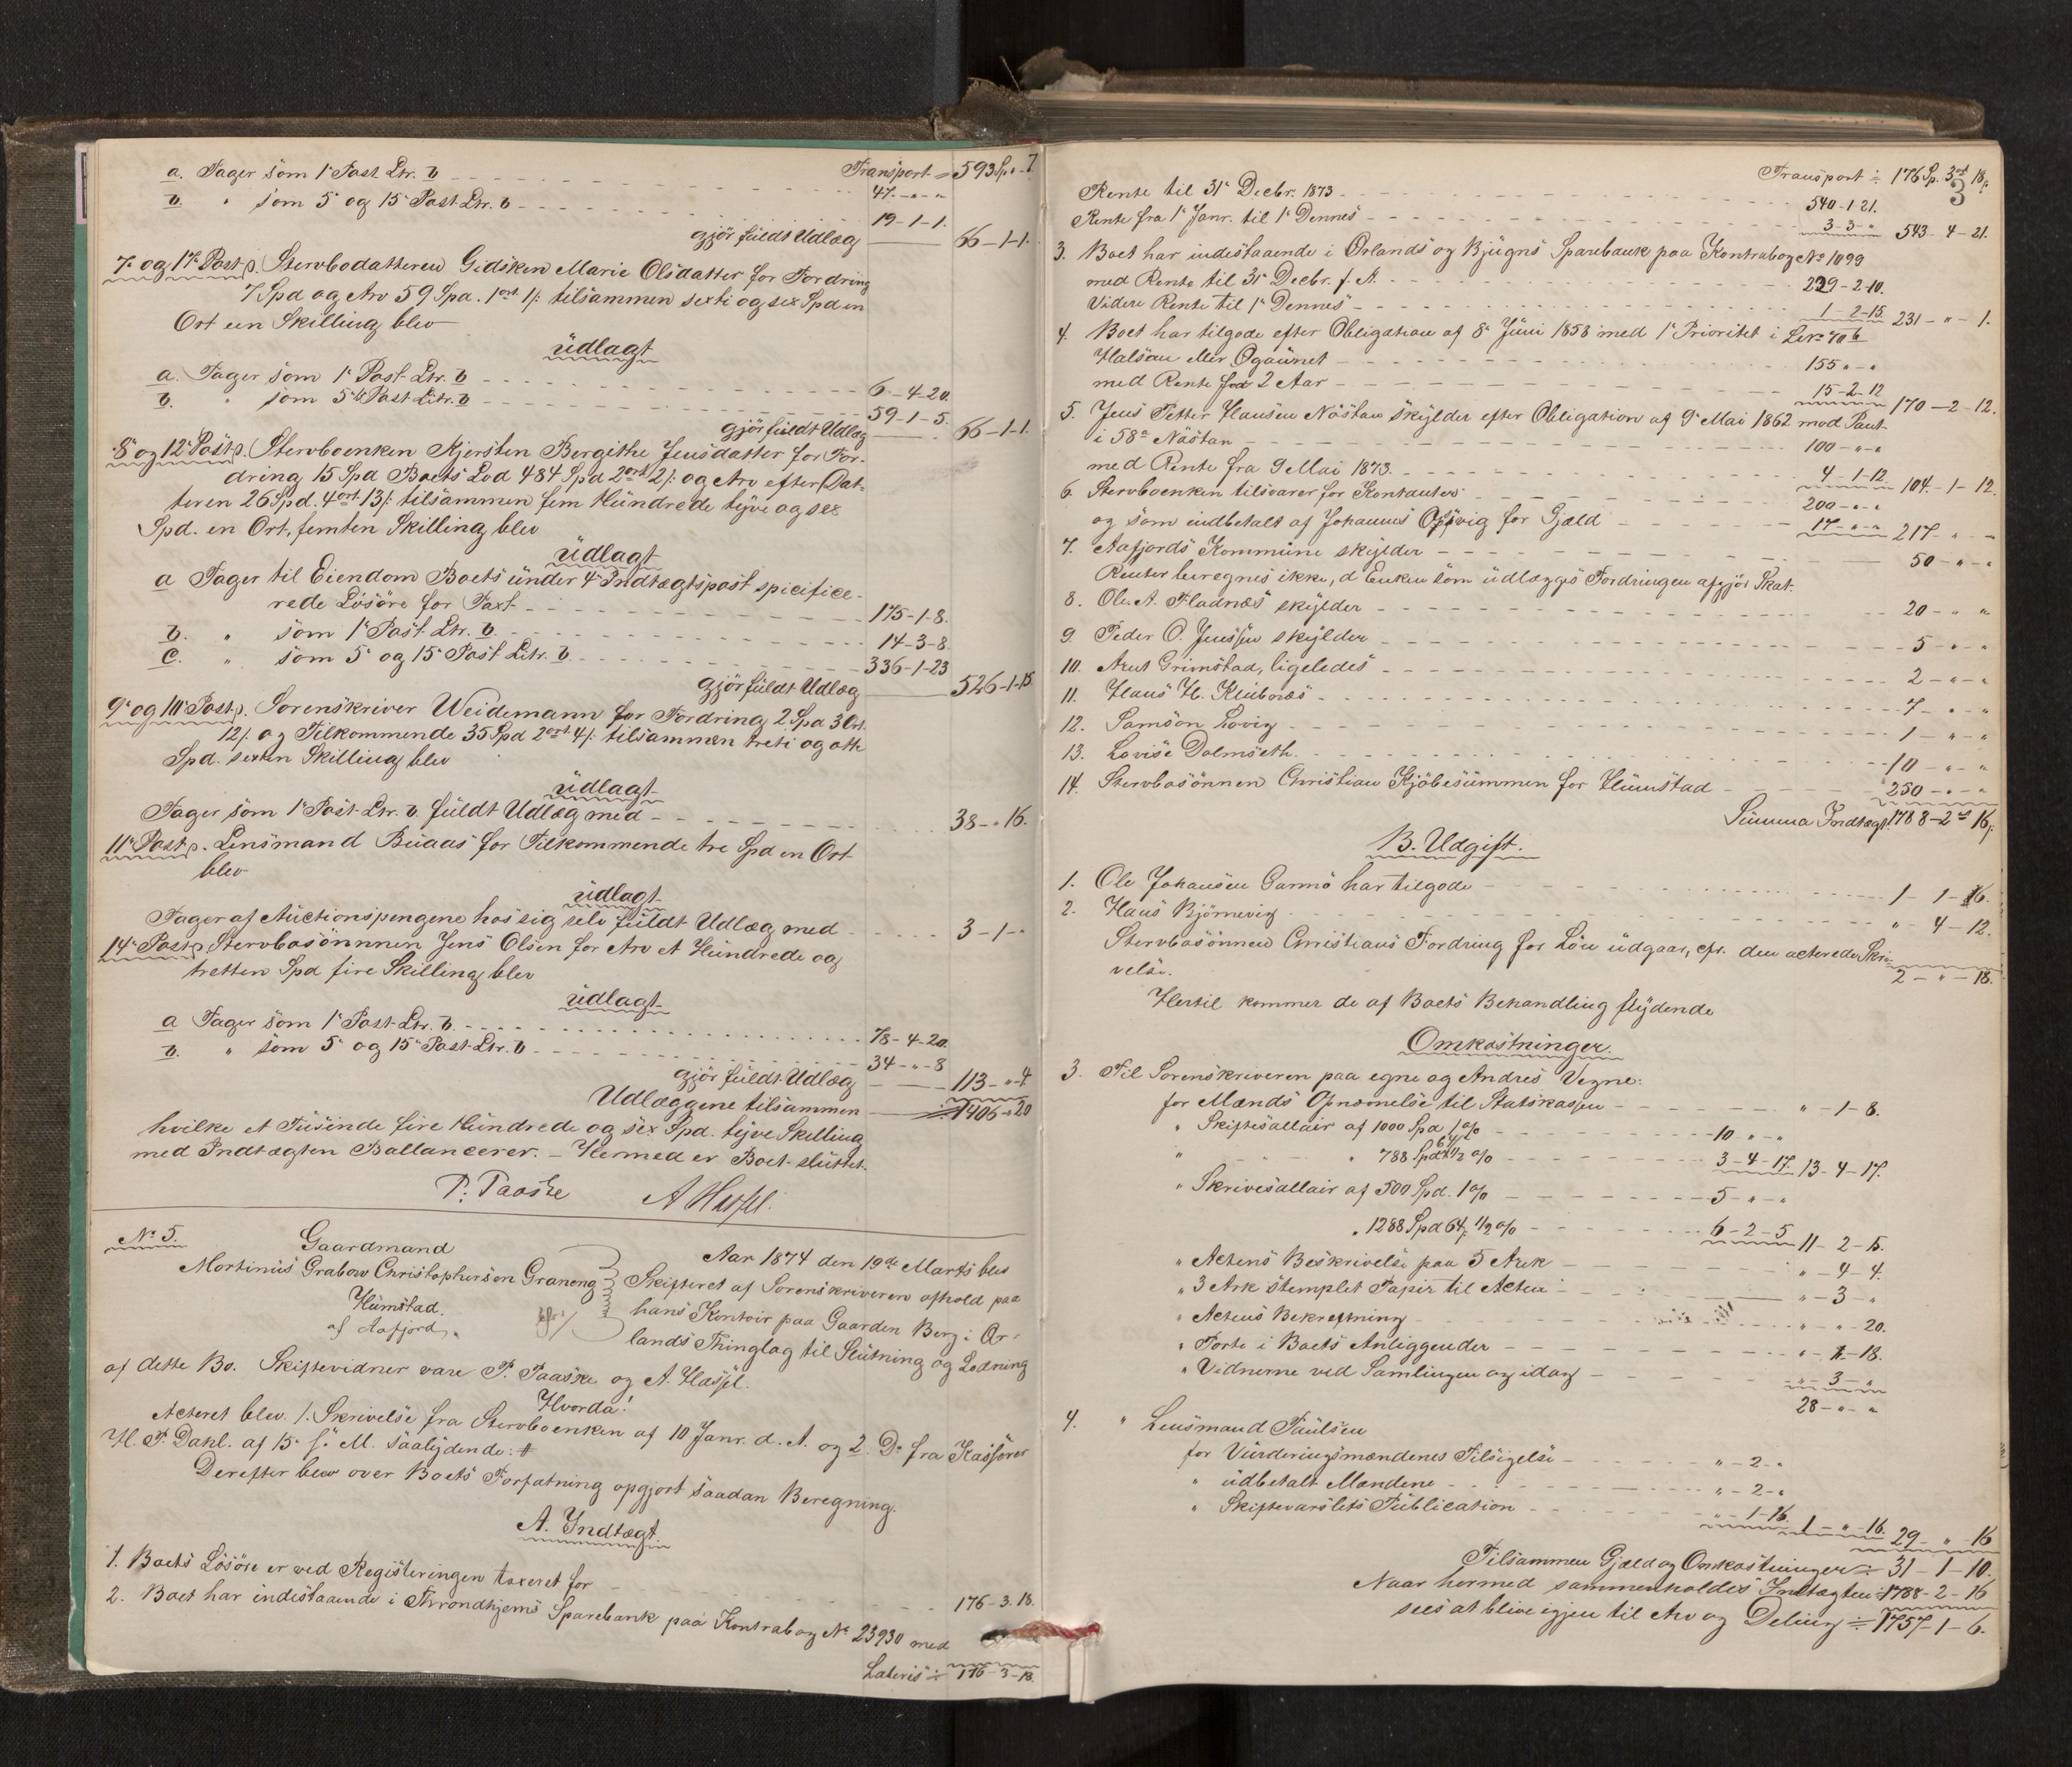 Transport = 593 Sp. " - 7
a. Tager som 1e Post Ltr. b - - - 47 - " - "
b. " som 5e og 15e Post Ltr. b - - - 19 - 1 - 1.
gjør fuldt Udlæg — 66 - 1 - 1.
7e og 17e Post. Stervbodatteren Gidsken Marie Olsdatter for Fordring
7 Spd og Arv 59 Spd. 1 ort 1 s. tilsammen sexti og sex Spd en
Ort een Skilling blev
udlagt
a. Tager som 1e Post Ltr. b - - - 6 - 4 - 20.
b. " som 5te Post Litr. b - - - 59 - 1 - 5.
gjør fuldt Udlæg — 66 - 1 - 1.
8e og 12e Post. Stervboenken Kjersten Bergithe Jensdatter for For-
dring 15 Spd Boets Lod 484 Spd 2 ort 2 s. og Arv efter Dat-
teren 26 Spd. 4 ort 13 s. tilsammen fem Hundrede tyve og sex
Spd. en Ort, femten Skilling blev
udlagt
a Tager til Eiendom Boets under 4e Indtægtspost spicifice-
rede Løsøre for Taxt - - - 175 - 1 - 8.
b. " som 1e Post Ltr. b. - - - 14 - 3 - 8.
c. " som 5e og 15e Post Litr. b - - - 336 - 1 - 23
gjør fuldt Udlæg — 526 - 1 - 15
9e og 10e Post. Sorenskriver Weidemann for Fordring 2 Spd 3 Ort.
12 s. og Tilkommende 35 Spd 2 ort 4 s. tilsammen treti og otte
Spd. sexten Skilling blev
udlagt
Tager som 1e Post Ltr. b. fuldt Udlæg med - - - 38 - " 16.
11e Post. Lensmand Buaas for Tilkommende tre Spd en Ort
blev
udlagt
Tager af Auctionspengene hos sig selv fuldt Udlæg med - - - 3 - 1 - "
14e Post. Stervbosønnnen Jens Olsen for Arv et Hundrede og
tretten Spd fire Skilling blev
udlagt
a Tager som 1e Post Ltr. b. - - - 78 - 4 - 20.
b. " som 5e og 15e Post Ltr. b - - - 34 - " - 8
gjør fuldt Udlæg — 113 - " - 4
Udlæggene tilsammen — 1406 - " 20
hvilke et Tusinde fire Hundrede og sex Spd. tyve Skilling
med Indtægten Ballancerer. - Hermed er Boet sluttet.
P. Paaske A Hassel.
No 5.
Gaardmand
Mortinus Grabow Christophersen Graneng
Humstad.
af Aafjord.
Aar 1874 den 19de Marts blev
Skifteret af Sorenskriveren afhold paa
hans Kontoir paa Gaarden Berg i Ør-
lands Thinglag til Slutning og Lodning
af dette Bo. Skiftevidner vare P. Paaske og A. Hassel.
Hvorda!
Acteret blev. 1. Skrivelse fra Stervboenken af 10 Janr. d. A. og 2. Do fra Kasserer
H. P. Dahl. af 15 f. M. saalydende: #
Derefter blev over Boets Forfatning opgjort saadan Beregning.
A. Indtægt
1. Boets Løsøre er ved Registeringen taxeret for - - - 176 - 3 - 18.
2. Boet har indestaaende i Throndhjems Sparebank paa Kontrabog No 23930 med
Lateris ÷ 176 - 3 - 18.
3
Transport ÷ 176 Sp. 3 ort 18 s.
Rente til 31e Decbr. 1873 - - - 540 - 1 - 21.
Rente fra 1e Janr. til 1e Dennes - - - 3 - 3 - " 543 - 4 - 21.
3. Boet har indestaaende i Ørlands og Bjugns Sparebank paa Kontrabog No 1099
med Rente til 31e Decbr. f. A. - - - 229 - 2 - 10.
Videre Rente til 1e Dennes - - - 1 - 2 - 15. 231 - " - 1.
4. Boet har tilgode efter Obligation af 8e Juni 1858 med 1e Prioritet i Lno 70b
Halsan eller Ogaunet - - - 155 " - "
med Rente for 2 Aar - - - 15 - 2 - 12 170 - 2 - 12.
5. Jens Petter Hansen Næstan skylder efter Obligation af 9e Mai 1862 med Pant
i 58a Næstan - - - 100 - " - "
med Rente fra 9 Mai 1873. - - - 4 - 1 - 12. 104 - 1 - 12.
6. Stervboenken tilsvarer for Kontanter - - - 200 - " - "
og som indbetalt af Johannes Opsvig for Gjæld - - - 17 - " - " 217 - " - "
7. Aafjords Kommune skylder - - - 50 - " - "
Renter beregnes ikke, d Enken som udlægges Fordringen afgjør Skat.
8. Ole A. Fladnæs skylder - - - 20 - " "
9. Peder O. Jenssen skylder - - - 5 - " - "
10. Arnt Grimstad, ligeledes - - - 2 - " - "
11. Hans H. Klubnæs - - - 7 - " - "
12. Samson Lovig - - - 1 - " - "
13. Lovise Dolmseth. - - - 10 - " - "
14. Stervbosønnen Christian Kjøbesummen for Humstad - - - 250 - " - "
Summa Indtægt. 1788 - 2 ort 16 s.
B. Udgift.
1. Ole Johansen Garmo har tilgode - - - 1 - 1 - 16.
2. Hans Bjørnevig - - - " - 4 - 12.
Stervbosønnen Christians Fordring for Løn udgaar, cfr. den acterede Skri-
velse. 2 - " - 18.
Hertil kommer de af Boets Behandling flydende
Omkostninger.
3. Til Sorenskriveren paa egne og Andres Vegne:
for Mænds Opnævnelse til Statskassen - - - " - 1 - 8.
" Skiftesallair af 1000 Spd 1 % - - - 10 " - "
" - " 788 Spd 64 s. 1/2 % - - - 3 - 4 - 17. 13 - 4 - 17.
" Skriversallair af 500 Spd. 1 % - - - 5 - " - "
" 1288 Spd 64 s. 1/2 % - - - 6 - 2 - 5 11 - 2 - 5.
" Actens Beskrivelse paa 5 Ark - - - " - 4 - 4.
" 3 Ark stemplet Papir til Acten - - - " - 3 - "
" Actens Bekreftning - - - " - " - 20.
" Porto i Boets Anliggender - - - " - 1 - 18.
" Vidnerne ved Samlingen og idag - - - " - 3 - "
28 - " - "
4. " Lensmand Paulsen
for Vurderingsmændenes Tilsigelse - - - " - 2 - "
" udbetalt Mændene - - - " - 2 - "
" Skiftevarslets Publication - - - " - 1 - 16. 1 - " - 16. 29 - " - 16
Tilsammen Gjæld og Omkostninger ÷ 31 - 1 - 10.
Naar hermed sammenholdes Indtægten 1788 - 2 - 16
sees at blive igjen til Arv og Deling ÷ 1757 - 1 - 6.